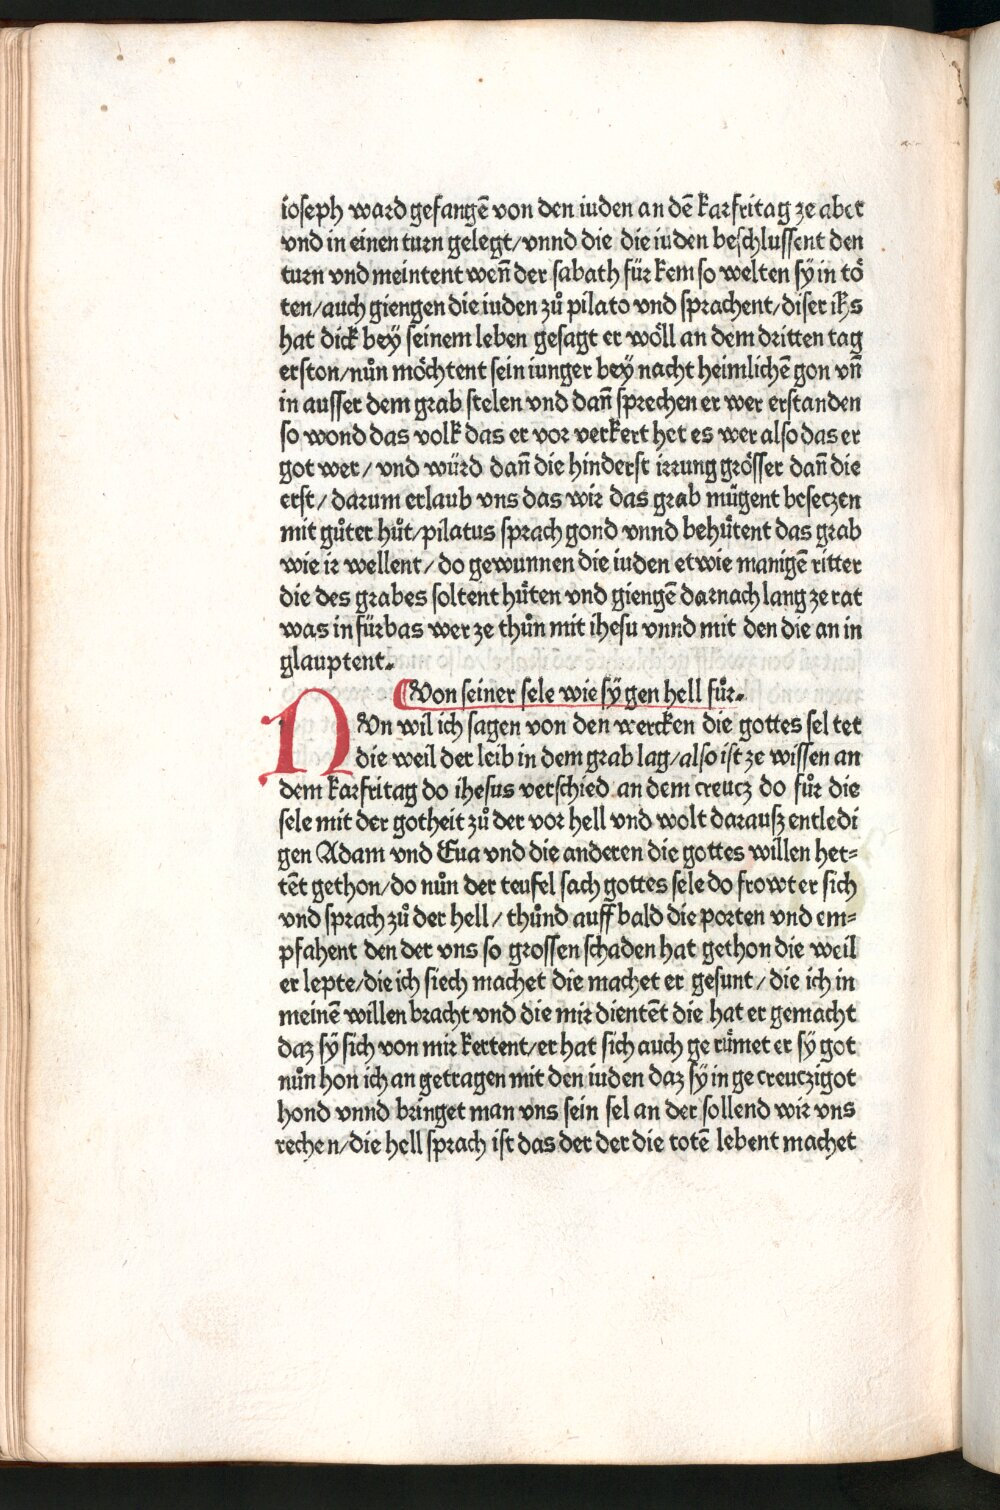 ioseph ward gefangē von den iuden an dē karfritag ze abet
vnd in einen turn gelegt/vnnd die die iuden beschlussent den
turn vnd meintent wen̄ der sabath für kem so welten sÿ in tö
ten/auch giengen die iuden zů pilato vnd sprachent/diser ihs
hat dick beÿ seinem leben gesagt er wöll an dem dritten tag
erston/nůn möchtent sein iunger beÿ nacht heimlichē gon vn̄
in ausser dem grab stelen vnd dan̄ sprechen er wer erstanden
so wond das volk das er vor verkert het es wer also das er
got wer/ vnd würd dan̄ die hinderst irrung grösser dan̄ die
erst/ darum erlaub vns das wir das grab mügent besetzen
mit gůter hůt/pilatus sprach gond vnnd behütent das grab
wie ir wellent/ do gewunnen die iuden etwie manigē ritter
die des grabes soltent hüten vnd giengē darnach lang ze rat
was in fürbas wer ze thůn mit ihesu vnnd mit den die an in
glauptent.
Von seiner sele wie sÿ gen hell fůr.
NVn wil ich sagen von den wercken die gottes sel tet
die weil der leib in dem grab lag/also ist ze wissen an
dem karfritag do ihesus verschied an dem creucz do fůr die
sele mit der gotheit zů der vor hell vnd wolt darausz entledi
gen Adam vnd Eua vnd die anderen die gottes willen het=
tēt gethon/do nůn der teufel sach gottes sele do frowt er sich
vnd sprach zů der hell/ thůnd auff bald die porten vnd em=
pfahent den der vns so grossen schaden hat gethon die weil
er lepte/die ich siech machet die machet er gesunt/ die ich in
meinē willen bracht vnd die mir dientēt die hat er gemacht
daz sÿ sich von mir kertent/er hat sich auch ge rümet er sÿ got
nůn hon ich an getragen mit den iuden daz sÿ in ge creuczigot
hond vnnd bringet man vns sein sel an der sollend wir vns
rechen/die hell sprach ist das der der die totē lebent machet